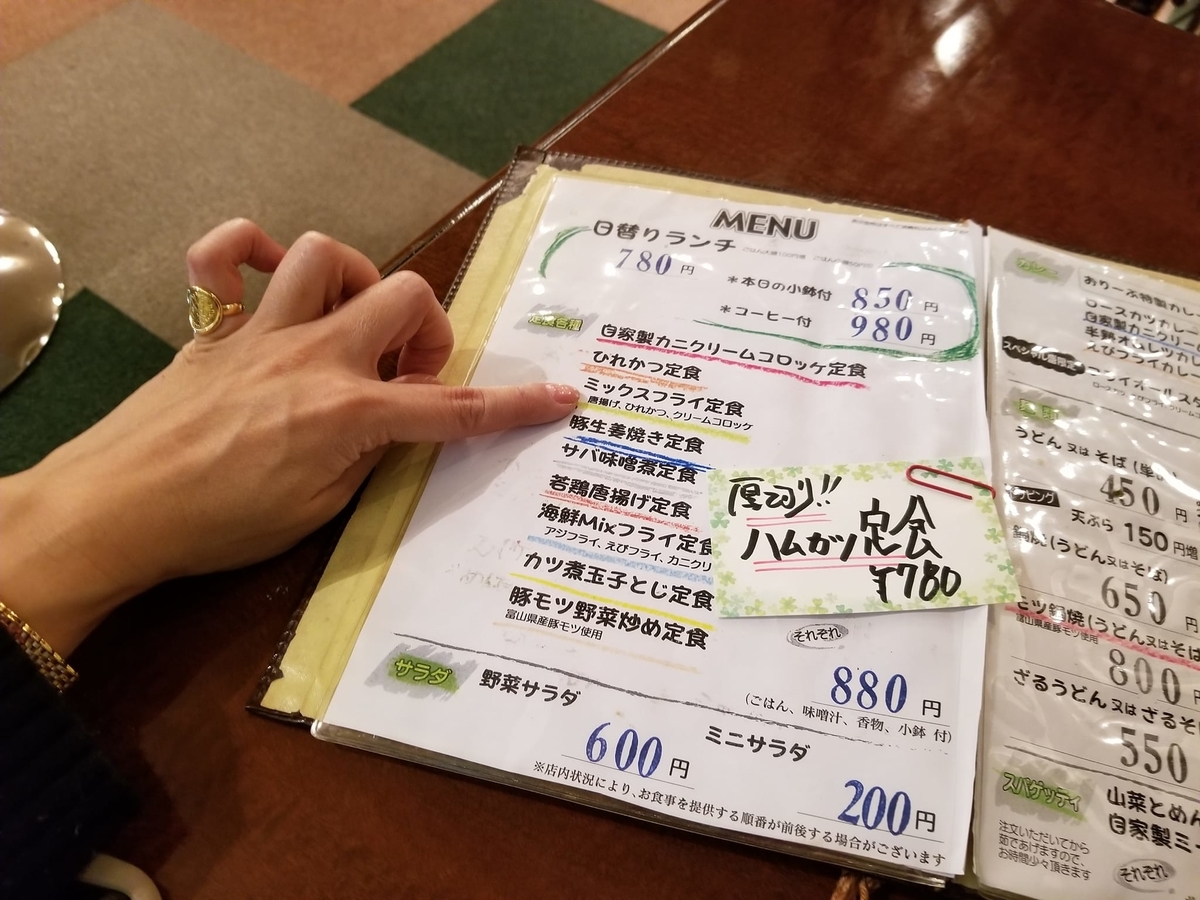 MENU
日替りランチ
780円
＊本日の小鉢付 850円
＊コーヒー付 980円
定食各種
自家製カニクリームコロッケ定食
ひれかつ定食
ミックスフライ定食
唐揚げ、ひれかつ、クリームコロッケ
豚生姜焼き定食
サバ味噌煮定食
若鶏唐揚げ定食
海鮮Mixフライ定食
アジフライ、えびフライ、カニクリ
カツ煮玉子とじ定食
豚モツ野菜炒め定食
富山県産豚モツ使用
厚切り!!
ハムカツ定食
¥780
それぞれ
880円
(ごはん、味噌汁、香物、小鉢 付)
サラダ
野菜サラダ
600円
ミニサラダ
200円
※店内状況により、お食事を提供する順番が前後する場合がございます
おりーぶ特製カレ
ロースカツカレー
自家製カニクリー
えびフライカレ
うどん 又は そば (単
450円
天ぷら 150円増
(うどん又はそば)
650
モツ鍋焼(うどん又はそば
富山県産豚モツ使用
800
ざるうどん 又は ざるそ
550
スパゲッティ
山菜とめん
自家製ミー
注文いただいてから
茹であげますので、
お時間少々頂きます
それぞれ